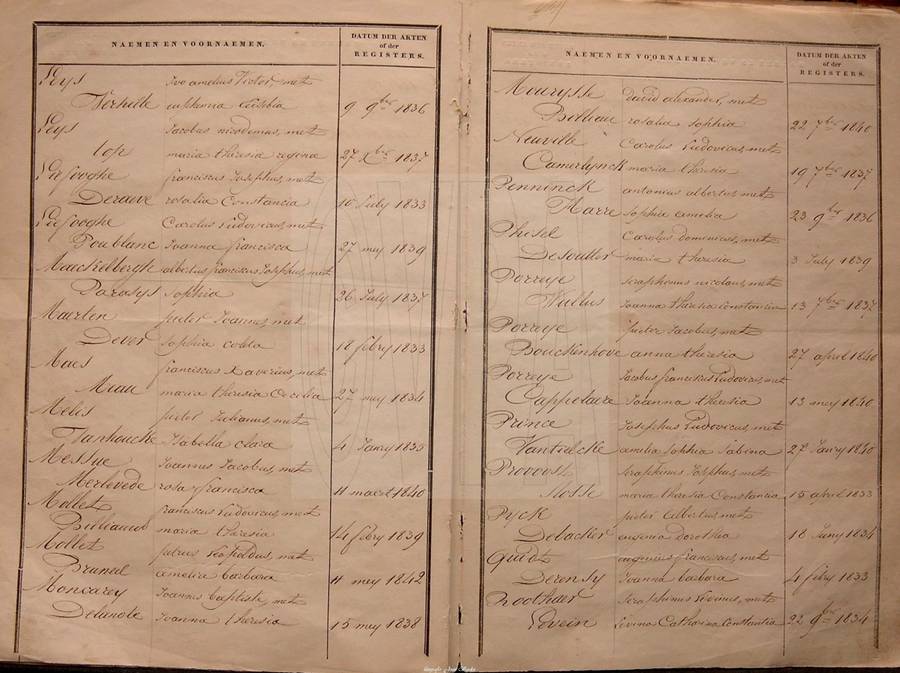 NAEMEN EN VOORNAEMEN.
DATUM DER AKTEN
of der
REGISTERS.
Leys Ivo amelius Victor, met
Verhille euphemia Eusebia 9 9bre 1836
Leys Jacobus nicodemus, met
Top maria theresia regena 27 Xbre 1837
Lefooghe franciscus Josephus, met
Deraeve rosalia Constancia 10 July 1833
Lefooghe Carolus Ludovicus, met
Poublanc Joanna francisca 27 mey 1839
Maeckelbergh albertus franciscus Josephus, met
Parasys Sophia 26 July 1837
Maerten pieter Joannes, met
Dever Sophia coleta 18 febry 1833
Maes franciscus Xaverius, met
Meau maria theresia Cecilia 27 mey 1834
Melis pieter Julianus, met
Vanhoucke Isabella clara 4 Janry 1835
Messue Joannes Jacobus, met
Merlevede rosa francisca 11 maert 1840
Mollet franciscus Ludovicus, met
maria theresia 14 febry 1839
Mollet petrus Leopoldus, met
Bruneel amelia barbara 11 mey 1842
Moncarey Joannes baptiste, met
Delanote Joanna theresia 15 mey 1838
NAEMEN EN VOORNAEMEN.
DATUM DER AKTEN
of der
REGISTERS.
Mourysse david alexander, met
Billiau rosalia Sophia 22 7bre 1840
Neuville Carolus Ludovicus, met
Camerlynck maria theresia 19 7bre 1837
Penninck antonius albertus, met
Harre Sophia amelia 23 9bre 1836
Carolus domenicus, met
Desoutter maria theresia 3 July 1839
Porreye seraphinus nicolaus, met
Wullus Joanna theresia constantia 13 7bre 1837
Porreye pieter Jacobus, met
Bouckenhove anna theresia 27 april 1840
Porreye Jacobus franciscus Ludovicus, met
Cappelaere Joanna theresia 13 mey 1840
Prince Josephus Ludovicus, met
Vantielcke amelia Sophia Sabina 27 Janry 1840
Provoost Seraphinus Josephus, met
Mosse maria theresia Constancia 15 april 1833
Pyck pieter Albertus, met
Debacker eugenia dorothia 18 Juny 1834
eugenius franciscus, met
Derensy Joanna barbara 4 febry 1833
Rootheer Seraphinus Livinus, met
Lovein Levina Catharina Constantia 22 9bre 1834